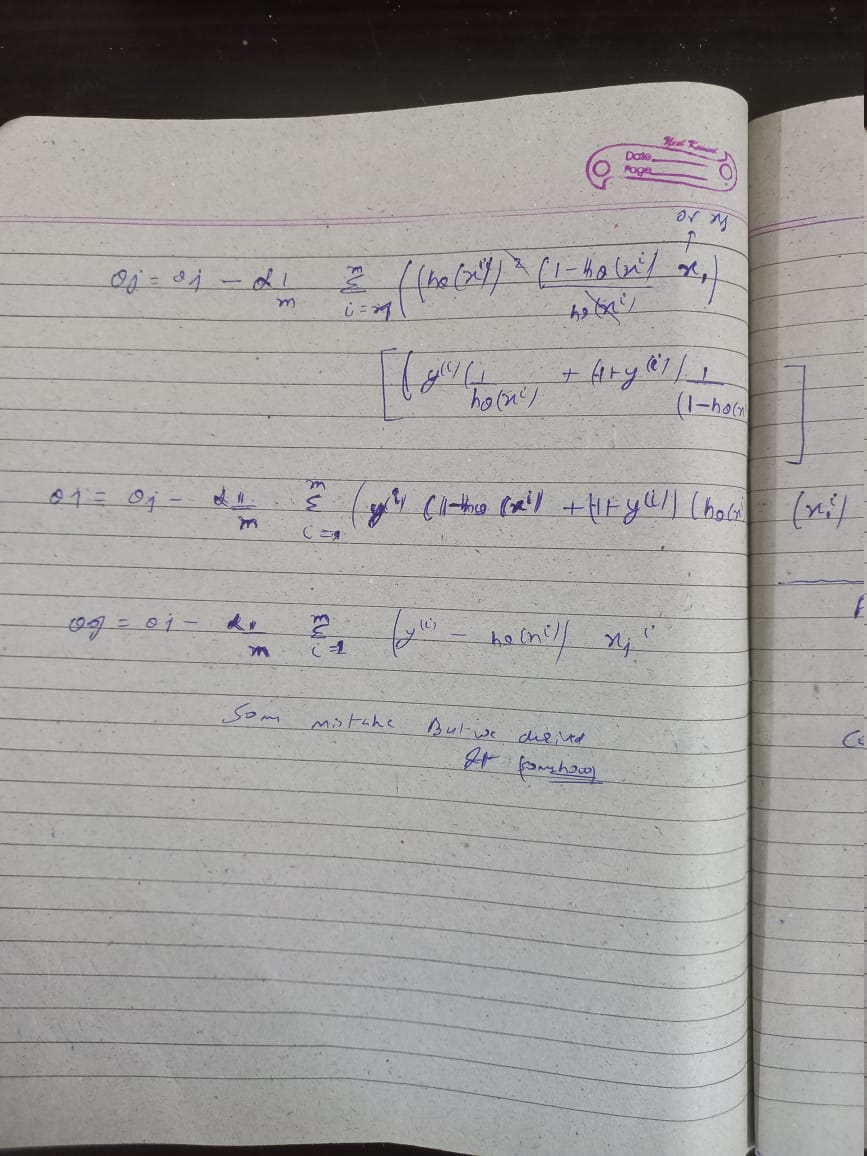 Next Knowl
Date
Page
or xj
θj = θj - α 1/m Σ i=1 m ((hθ(x^i))^2 (1-hθ(x^i))/hθ(x^i) x,)
[(y^(i)(1/hθ(x^i)) + (1+y^(i)) 1/(1-hθ(x]
θj = θj - α 1/m Σ i=1 m (y^(i) (1-hθ(x^i) + (1+y^(i)) (hθ(x (x^i)
θj = θj - α 1/m Σ i=1 m (y^(i) - hθ(x^i)) xj^i
Som mistake But we derived
It somehow